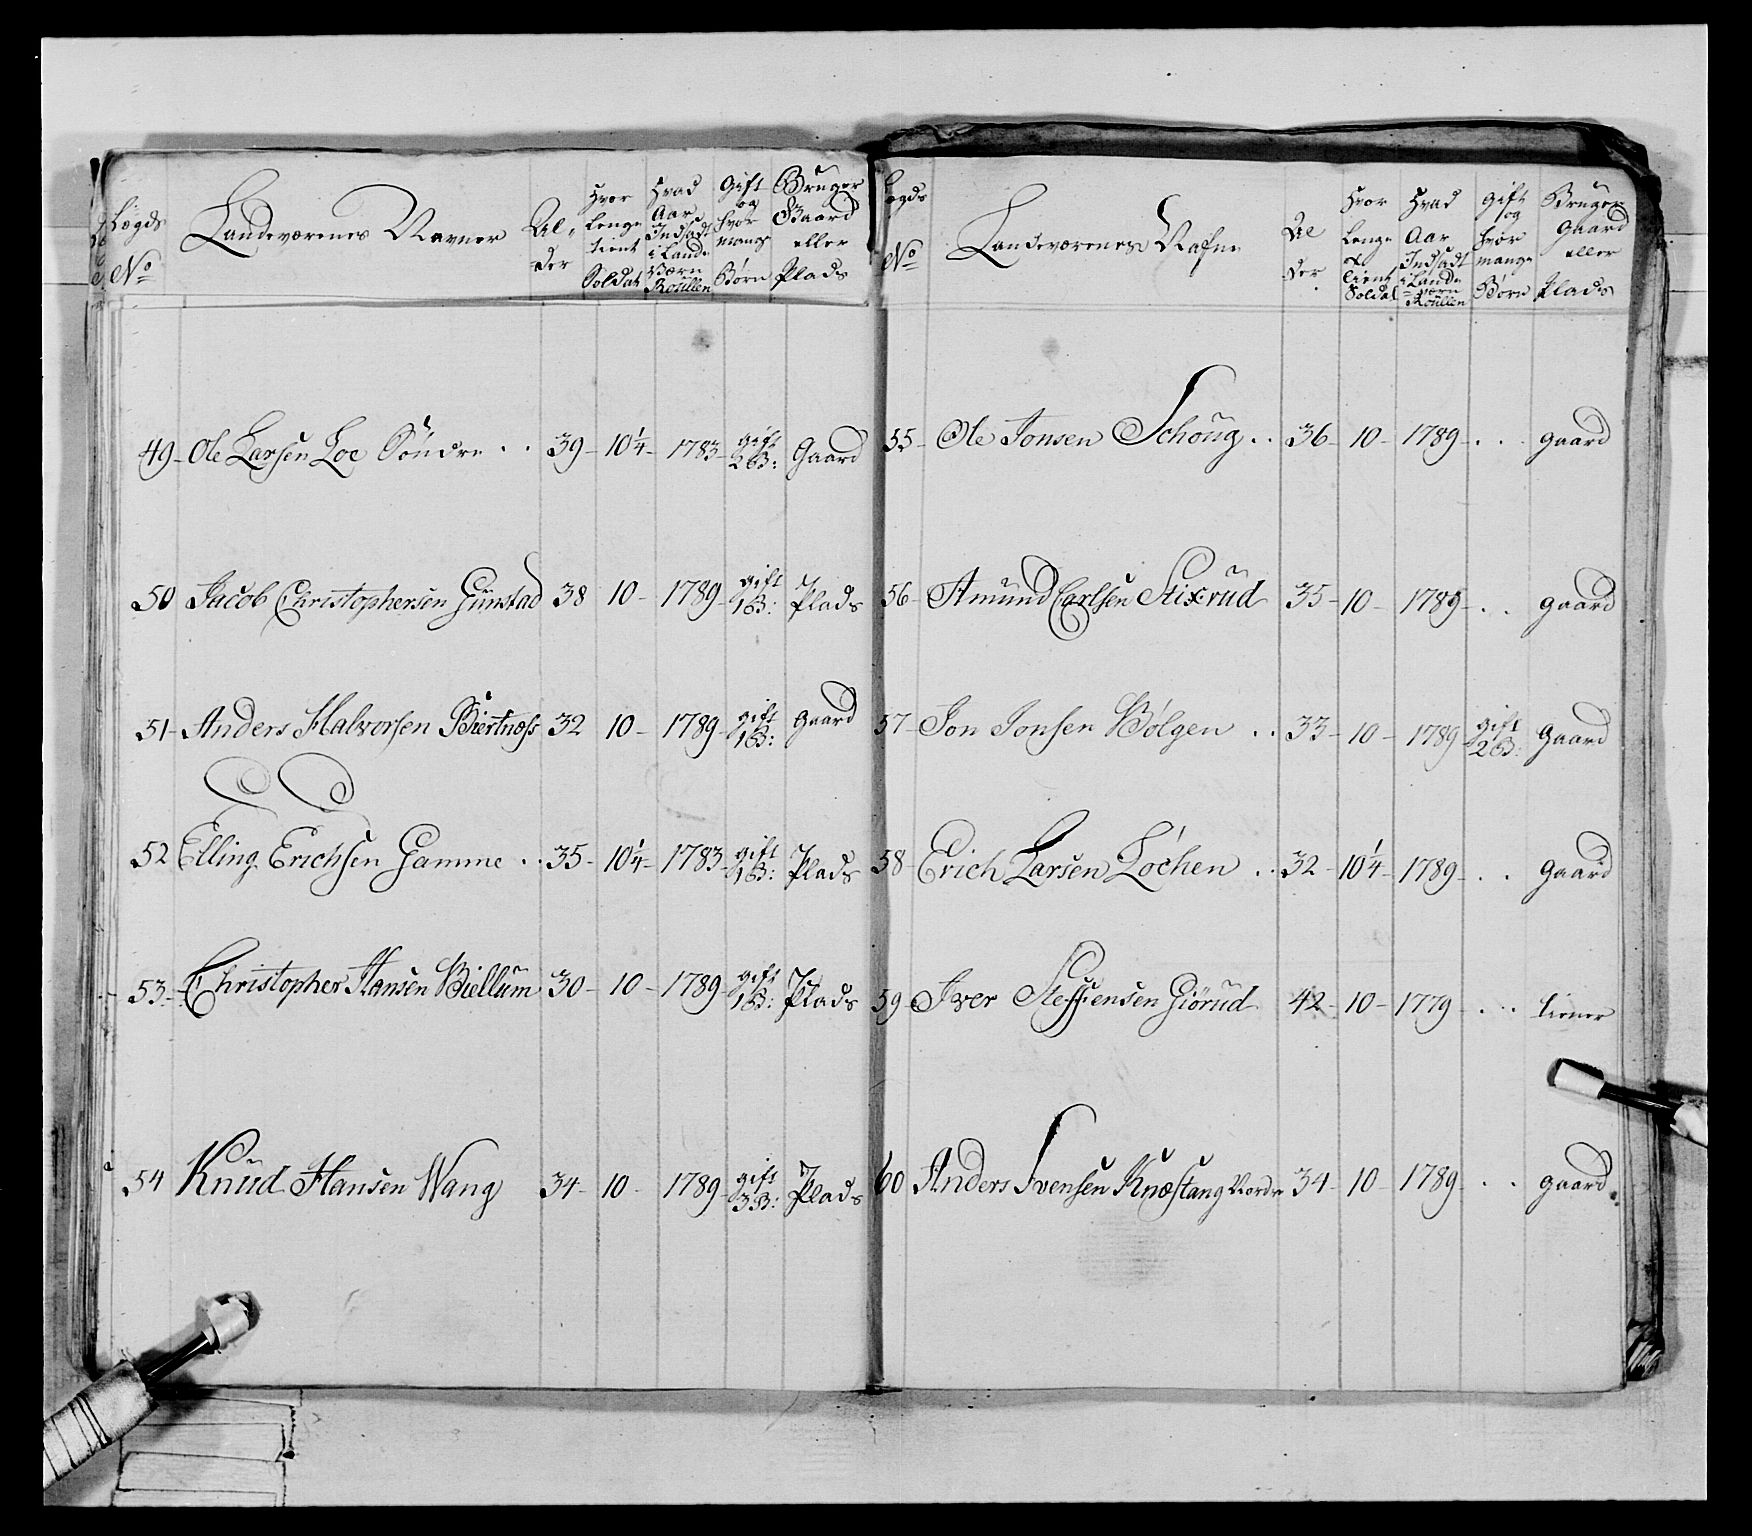 Lægds No
Landeværenes Navner
Al,der
Hvor lenge tient Soldat
Hvad Aar Indsadt i Lande Værn Roullen
Gift og hvor mange Børn
Bruger Gaard eller Plads
49 - Ole Larsen Loe Söndre . . 39 - 10¼ - 1783 - gift 2 B: Gaard
50 Jacob Christophersen Gunstad 38 10 - 1789 - gift 1 B: Plads
51 - Anders Halvorsen Biertnæss 32 10 - 1789 - gift 1 B: gaard
52 Elling Erichsen Gamme . . 35 - 10¼ - 1783 - gift 1 B: Plads
53 - Christopher Hansen Biellum 30 - 10 - 1789 - gift 1 B: Plads
54 Knud Hansen Wang 34 - 10 - 1789 - gift 3 B: Plads
Lægds No
Landeværenes Nafne
Al der
Hvor lenge tient Soldat
Hvad Aar Indsadt i Lande = værn Roullen
gift og hvor mange Børn
Bruger Gaard eller Plads
55 - Ole Jonsen Schoug . . 36 - 10 - 1789 - . . . gaard
56 - Amund Carlsen Stixrud 35 - 10 - 1789 - . . gaard
57 - Jon Jonsen Bölgen . . 33 - 10 - 1789 gift 2 B: Gaard
58 - Erich Larsen Löchen . . 32 - 10¼ - 1789 - . . Gaard
59 Iver Steffensen Giörud 42 - 10 - 1779 - . . . tiener
60 Anders Svensen Knæstang Nordre 34 - 10 - 1789 - . . gaard